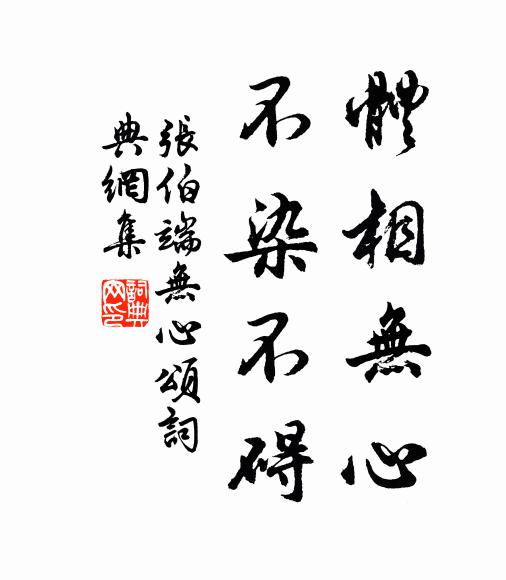 體相無心
不染不碍
張伯端無心頌詞
典網集
詞典網印